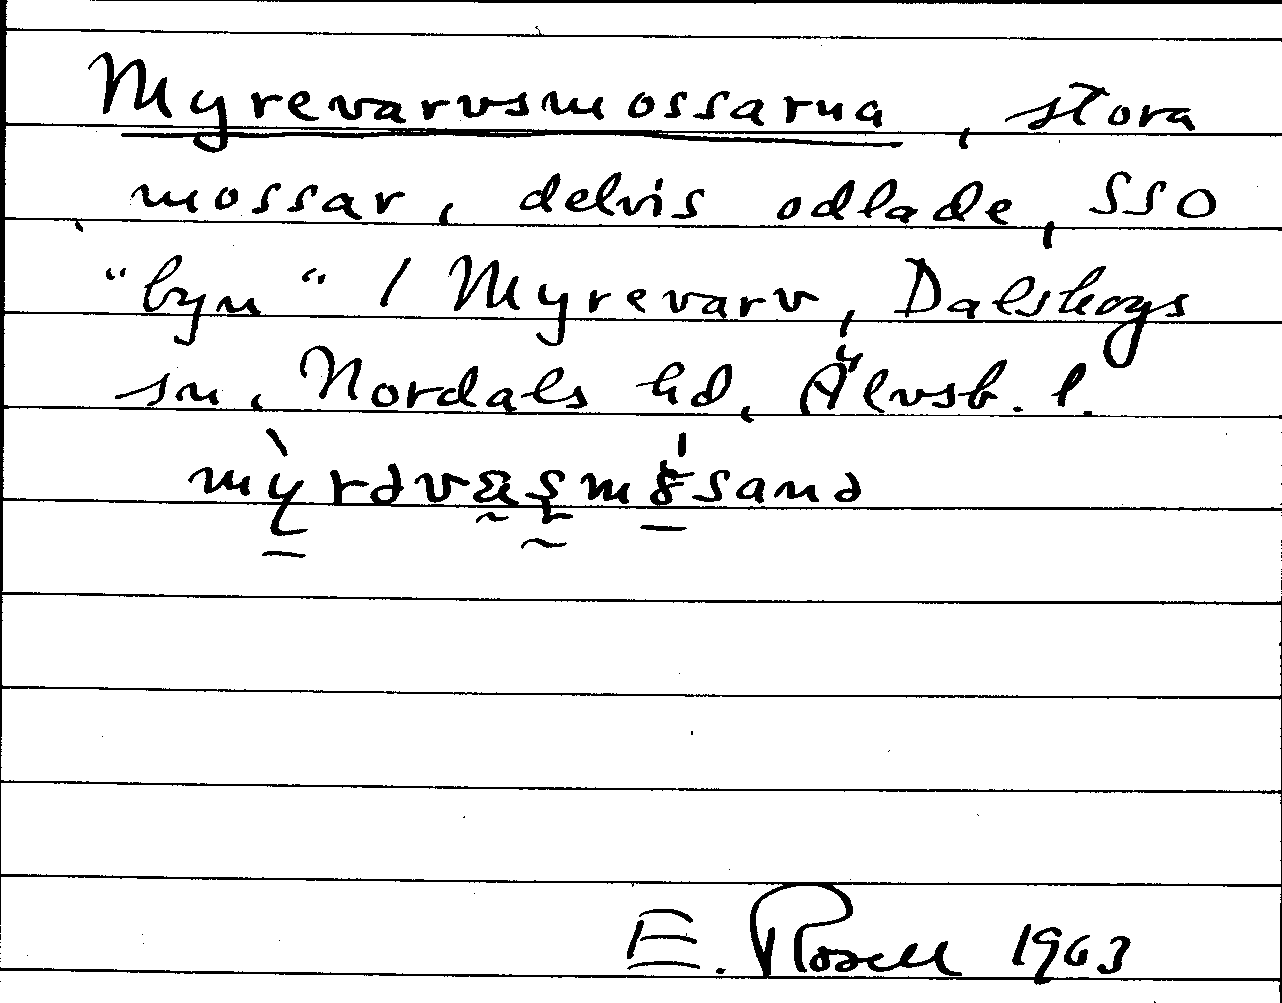 Myrevarvsmossarna, stora
mossar, delvis odlade, SSO
"byn" / Myrevarv, Dalskogs
sn, Nordals hd, Älvsb. l.
E. Rosell 1963